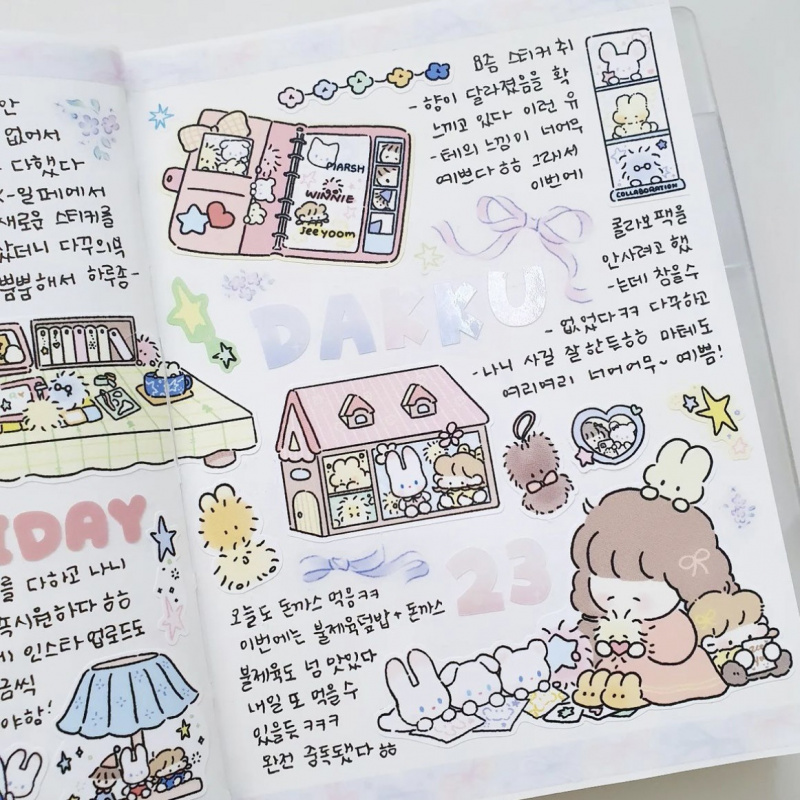 안
없어서
다했다
-일페에서
새로운 스티커를
샀더니 다꾸의부
뿜뿜해서 하루좀-
IDAY
를 다하고 나니
속시원하다 ㅎㅎ
인스타 업로드도
금씩
야항!
요즘 스티커 취
-향이 달라졌음을 확
느끼고 있다 이런 유
-테의 느낌이 너어무
예쁘다 ㅎㅎ 그래서
이번에
MARSH
WINNIE
Jee yoom
COLLABORATION
콜라보팩을
안사려고 했
-는데 참을수
-없었다ㅋㅋ 다꾸하고
-나니 사길 잘한듯ㅎㅎ 마테도
여리여리 너어어무~ 예쁨!
DAKKU
23
오늘도 돈까스 먹음ㅋㅋ
이번에는 불제육덮밥+돈까스
불제육도 넘 맛있다
내일 또 먹을수
있을듯 ㅋㅋㅋ
완전 중독됐다 ㅎㅎ